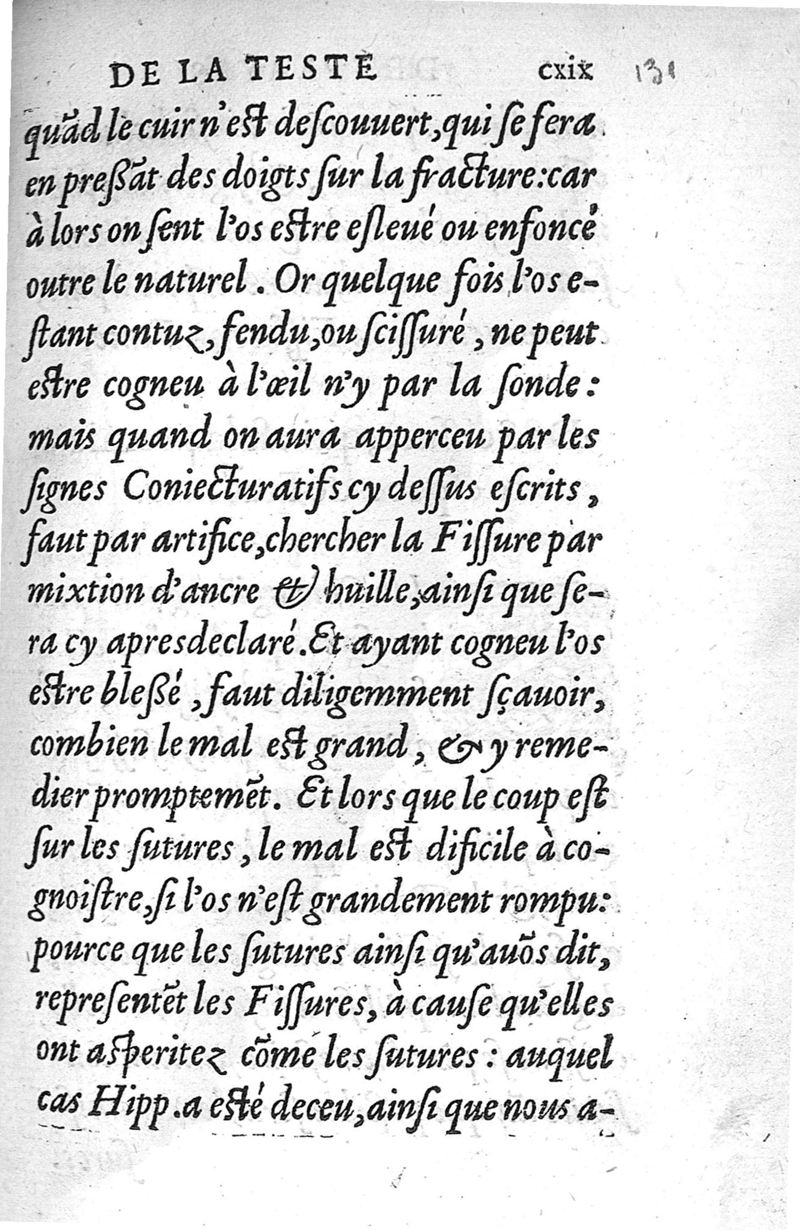 DE LA TESTE cxix 131
quãd le cuir n'est deſcouuert, qui ſe fera
en preßãt des doigts ſur la fracture: car
à lors on ſent l'os estre eſleué ou enfoncé
outre le naturel. Or quelque fois l'os e-
ſtant contuz, fendu, ou ſciſſuré, ne peut
estre cogneu à l'œil n'y par la ſonde:
mais quand on aura apperceu par les
ſignes Coniecturatifs cy deſſus eſcrits,
faut par artifice, chercher la Fiſſure par
mixtion d'ancre & huille, ainſi que ſe-
ra cy apresdeclaré. Et ayant cogneu l'os
estre bleßé, faut diligemment ſçauoir,
combien le mal est grand, & y reme-
dier promptemẽt. Et lors que le coup eſt
ſur les ſutures, le mal est dificile à co-
gnoiſtre, ſi l'os n'eſt grandement rompu:
pource que les ſutures ainſi qu'auõs dit,
repreſentẽt les Fiſſures, à cauſe qu'elles
ont aſperitez cõme les ſutures: auquel
cas Hipp. a esté deceu, ainſi que nous a-